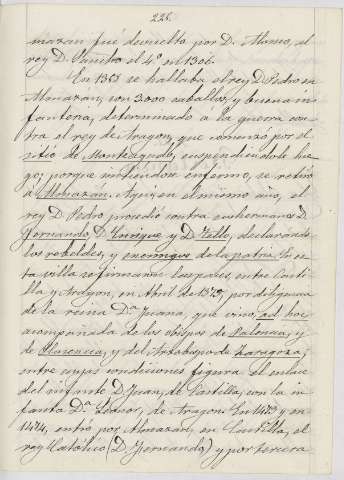 226.
mazan fué devuelto por D. Alonso, el
rey D. Sancho el 4º en 1306.
En 1355 se hallaba el rey D. Pedro en
Almazán, con 3.000 caballos, y buena in
fanteria, determinado a la guerra con
tra el rey de Aragon, que comenzó por el
sitio de Monteagudo, suspendiendole lue
go; porque sintiendose enfermo, se retiró
a Almazán. Aqui, en el mismo año, el
rey D. Pedro procedió contra sus hermanos D.
Fernando, D. Enrique y D. Tello, declarando
los rebeldes, y enemigos de la patria. En es
ta villa se firmaron las paces, entre Casti
lla y Aragon, en Abril de 1375, por diligencia
de la reina Dª Juana, que vino, ad hoc
acompañada de los obispos de Palencia, y
de Plasencia, y del Arzobispo de Zaragoza;
entre cuyas condiciones figura el enlace
del infante D. Juan, de Castilla, con la in
fanta Dª Leonor, de Aragon. En 1473 y en
1474, entró por Almazán, en Castilla, el
rey Católico (D. Fernando) y por tercera